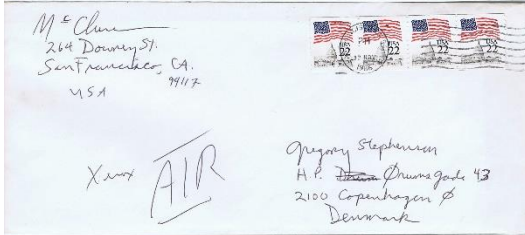 Mc Clure
264 Downey St.
San Francisco, CA.
94117
USA
USA
22
USA
22
USA
22
USA
22
PM
1986
Xerox
AIR
Gregory Stephenson
H.P. Ørumsgade 43
2100 Copenhagen Ø
Denmark